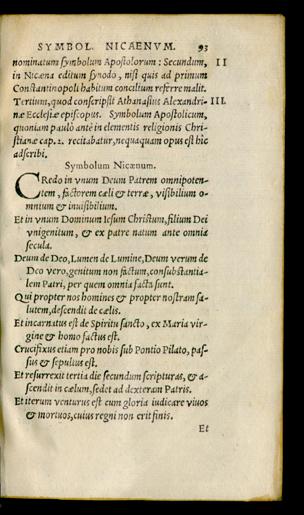 SYMBOL. NICAENVM. 93
nominatum symbolum Apostolorum : Secundum, II
in Nicæna editum synodo, nisi quis ad primum
Constantinopoli habitum concilium referre malit.
Tertium, quod conscripsit Athanasius Alexandri- III.
næ Ecclesiæ episcopus. Symbolum Apostolicum,
quoniam paulò antè in elementis religionis Chri-
stianæ cap. 2. recitabatur, nequaquam opus est hîc
adscribi.
Symbolum Nicænum.
CRedo in vnum Deum Patrem omnipoten-
tem, factorem cæli & terræ, visibilium o-
mnium & inuisibilium.
Et in vnum Dominum Iesum Christum, filium Dei
vnigenitum, & ex patre natum ante omnia
secula.
Deum de Deo, Lumen de Lumine, Deum verum de
Deo vero, genitum non factum, consubstantia-
lem Patri, per quem omnia facta sunt.
Qui propter nos homines & propter nostram sa-
lutem, descendit de cælis.
Et incarnatus est de Spiritu sancto, ex Maria vir-
gine & homo factus est.
Crucifixus etiam pro nobis sub Pontio Pilato, pas-
sus & sepultus est.
Et resurrexit tertia die secundum scripturas, & a-
scendit in cælum, sedet ad dexteram Patris.
Et iterum venturus est cum gloria iudicare viuos
& mortuos, cuius regni non erit finis.
Et